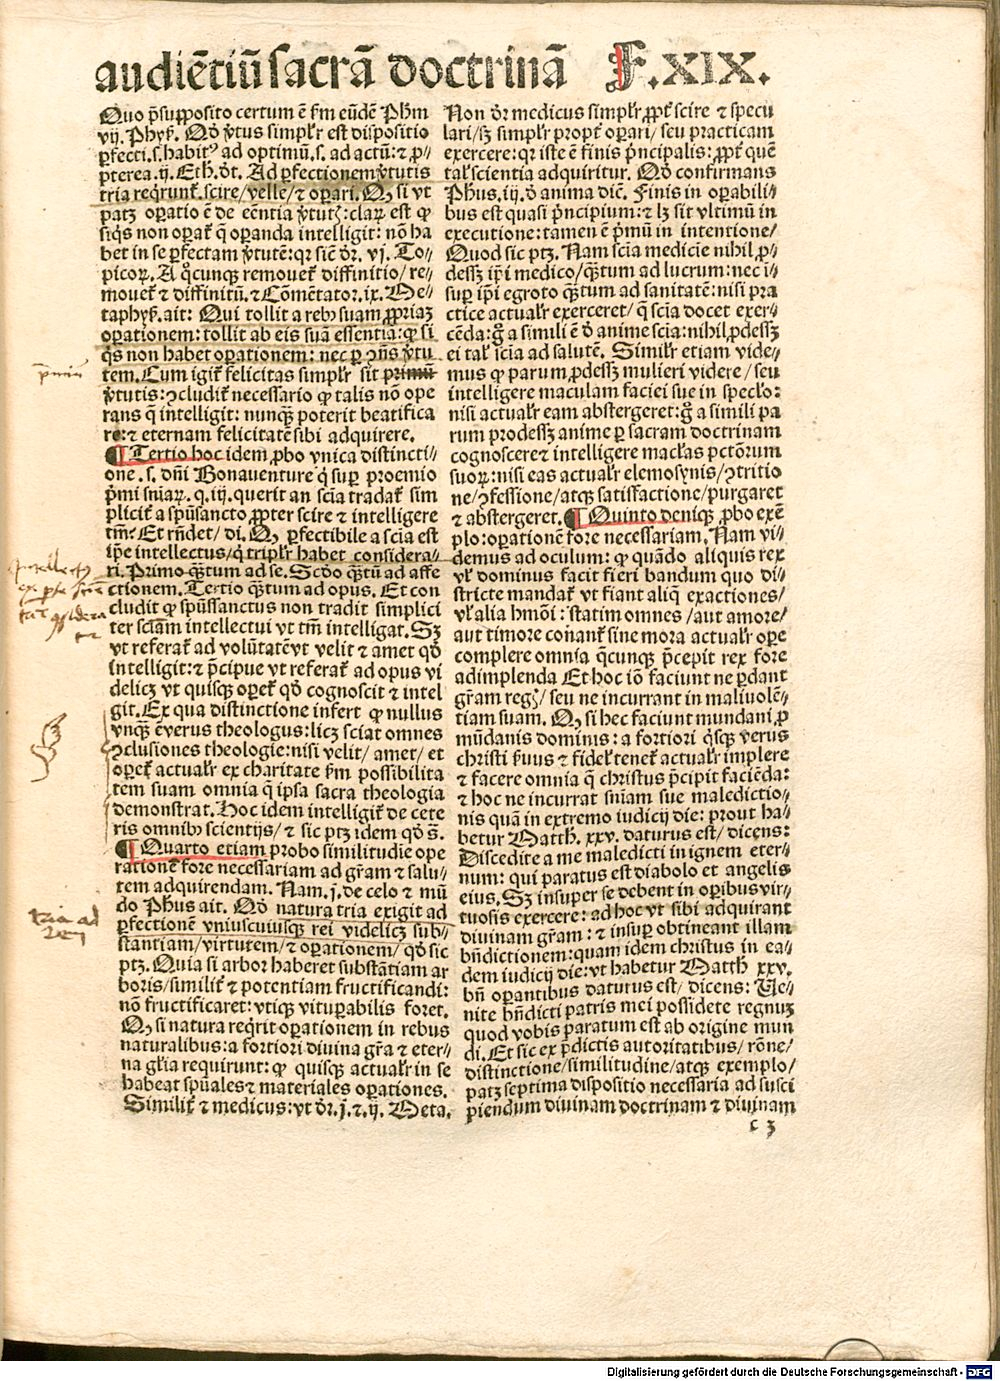 audiẽtiũ sacrã doctrinã F.XIX.
Quo p̃supposito certum ẽ fm eũdẽ Phm
vij. Phys. Qď v̾tus simpl̾r est dispositio
ꝑfecti.s.habitꝰ ad optimũ.s. ad actũ: ⁊ ꝓ-
pterea.ij. Eth. d̾t. Ad ꝑfectionem v̾tutis
tria req̃runt̾. scire/velle/⁊ oꝑari. Qꝫ si vt
patꝫ oꝑatio ẽ de eẽntia v̾tutꝭ: claꝝ est ꝙ
siq̃s non oꝑat̾ q̃ oꝑanda intelligit: nõ ha
bet in se ꝑfectam v̾tutẽ: qꝛ sicut d̾r. vj. To-
picoꝝ. A q̊cunqꝫ remouet̾ diffinitio/re-
mouet̾ ⁊ diffinitũ. ⁊ Cõmẽtator.ix. Me-
taphys. ait: Qui tollit a rebꝰ suam ꝓpriaꝫ
oꝑationem: tollit ab eis suã essentia: ꝙ si
q̃s non habet oꝑationem: nec ꝑ ꝯñs v̾tu
tem. Cum igit̾ felicitas simpl̾r sit primũ
v̾tutis: ꝯcludit̾ necessario ꝙ talis nõ ope
rans q̃ intelligit: nunqꝫ poterit beatifica
re: ⁊ eternam felicitatẽ sibi adquirere.
¶ Tertio hoc idem ꝓbo vnica distincti-
one.s. dñi Bonauenture q̃ suꝑ proemio
p̃mi sniaꝝ. q. iij. querit an scia tradat̾ sim
plicit̾ a spũsancto ꝓpter scire ⁊ intelligere
tm̃: Et rñdet/di. Qꝫ ꝑfectibile a scia est
ip̃e intellectus/q̃ tripl̾r habet considera-
ri. Primo qꝫtum ad se. Scďo qꝫtũ ad affe
ctionem. Tertio qꝫtum ad opus. Et con
cludit ꝙ spũssanctus non tradit simplici
ter sciãm intellectui vt tm̃ intelligat. Sꝫ
vt referat̾ ad volũtatẽ vt velit ⁊ amet qď
intelligit: ⁊ p̃cipue vt referat̾ ad opus vi
delicꝫ vt quisqꝫ oꝑet̾ qď cognoscit ⁊ intel
git. Ex qua distinctione infert ꝙ nullus
vnqꝫ ẽ verus theologus: licꝫ sciat omnes
ꝯclusiones theologie: nisi velit/amet/et
oꝑet̾ actual̾r ex charitate fm possibilita
tem suam omnia q̃ ipsa sacra theologia
demonstrat. Hoc idem intelligit̾ de cete
ris omnibꝰ scientijs/⁊ sic ptꝫ idem qď s̃.
¶ Quarto etiam probo similitudie ope
rationẽ fore necessariam ad gr̃am ⁊ salu-
tem adquirendam. Nam.j. de celo ⁊ mũ
do Phus ait. Qď natura tria exigit ad
ꝑfectionẽ vniuscuiusqꝫ rei videlicꝫ sub-
stantiam/virtutem/⁊ oꝑationem/qď sic
ptꝫ. Quia si arbor haberet substãtiam ar
boris/similit̾ ⁊ potentiam fructificandi:
nõ fructificaret: vtiqꝫ vituꝑabilis foret.
Qꝫ si natura req̃rit oꝑationem in rebus
naturalibus: a fortiori diuina gr̃a ⁊ eter-
na gl̃ia requirunt: ꝙ quisqꝫ actual̾r in se
habeat spũales ⁊ materiales oꝑationes.
Similit̾ ⁊ medicus: vt d̾r.j.⁊.ij. Meta.
Non d̾r medicus simpl̾r ꝓpt̾ scire ⁊ specu
lari/sꝫ simpl̾r propt̾ oꝑari/seu practicam
exercere: qꝛ iste ẽ finis p̃ncipalis: ꝓpt̾ quẽ
tal̾ scientia adquiritur. Qď confirmans
Phus.iij. ď anima dic̃. Finis in oꝑabili-
bus est quasi p̃ncipium: ⁊ lꝫ sit vltimũ in
executione: tamen ẽ p̃mũ in intentione/
Quod sic ptꝫ. Nam scia medicie nihil ꝓ-
dess̃ ip̃i medico/qꝫtum ad lucrum: nec i-
suꝑ ip̃i egroto qꝫtum ad sanitatẽ: nisi pra
ctice actual̾r exerceret/q̃ scia docet exer-
cẽda: g̊ a simili ẽ ď anime scia: nihil ꝓdessꝫ
ei tal̾ scia ad salutẽ. Simil̾r etiam vide-
mus ꝙ parum ꝓdessꝫ mulieri videre/seu
intelligere maculam faciei sue in spec̾lo:
nisi actual̾r eam abstergeret: g̊ a simili pa
rum prodessꝫ anime ꝑ sacram doctrinam
cognoscere ⁊ intelligere mac̾las pctõrum
suoꝝ: nisi eas actual̾r elemosynis/ꝯtritio
ne/ꝯfessione/atqꝫ satisfactione/purgaret
⁊ abstergeret. ¶ Quinto deniqꝫ ꝓbo exẽ
plo: oꝑationẽ fore necessariam. Nam vi-
demus ad oculum: ꝙ quãdo aliquis rex
vl̾ dominus facit fieri bandum quo di-
stricte mandat̾ vt fiant aliq̃ exactiones/
vl̾ alia hmõi: statim omnes/aut amore/
aut timore conant̾ sine mora actual̾r oꝑe
complere omnia q̃cunqꝫ p̃cepit rex fore
adimplenda Et hoc iõ faciunt ne ꝑdant
gr̃am regꝭ/seu ne incurrant in maliuolẽ-
tiam suam. Qꝫ si hec faciunt mundani ꝓ
mũdanis dominis: a fortiori q̃sqꝫ verus
christi s̾uus ⁊ fidel̾ tenet̾ actual̾r implere
⁊ facere omnia q̃ christus p̃cipit faciẽda:
⁊ hoc ne incurrat sniam sue maledictio-
nis quã in extremo iudicij die: prout ha-
betur Matth. xxv. daturus est/dicens:
Discedite a me maledicti in ignem eter-
num: qui paratus est diabolo et angelis
eius. Sꝫ insuper se debent in oꝑibus vir-
tuosis exercere: ad hoc vt sibi adquirant
diuinam gr̃am: ⁊ insuꝑ obtineant illam
bñdictionem: quam idem christus in ea-
dem iudicij die: vt habetur Matth xxv.
bñ oꝑantibus daturus est/dicens: Ue-
nite bñdicti patris mei possidete regnuꝫ
quod vobis paratum est ab origine mun
di. Et sic ex p̃dictis autoritatibus/rõne/
distinctione/similitudine/atqꝫ exemplo/
patꝫ septima dispositio necessaria ad susci
piendum diuinam doctrinam ⁊ diuinam
c 3
tria ad
Digitalisierung gefördert durch die Deutsche Forschungsgemeinschaft - DFG